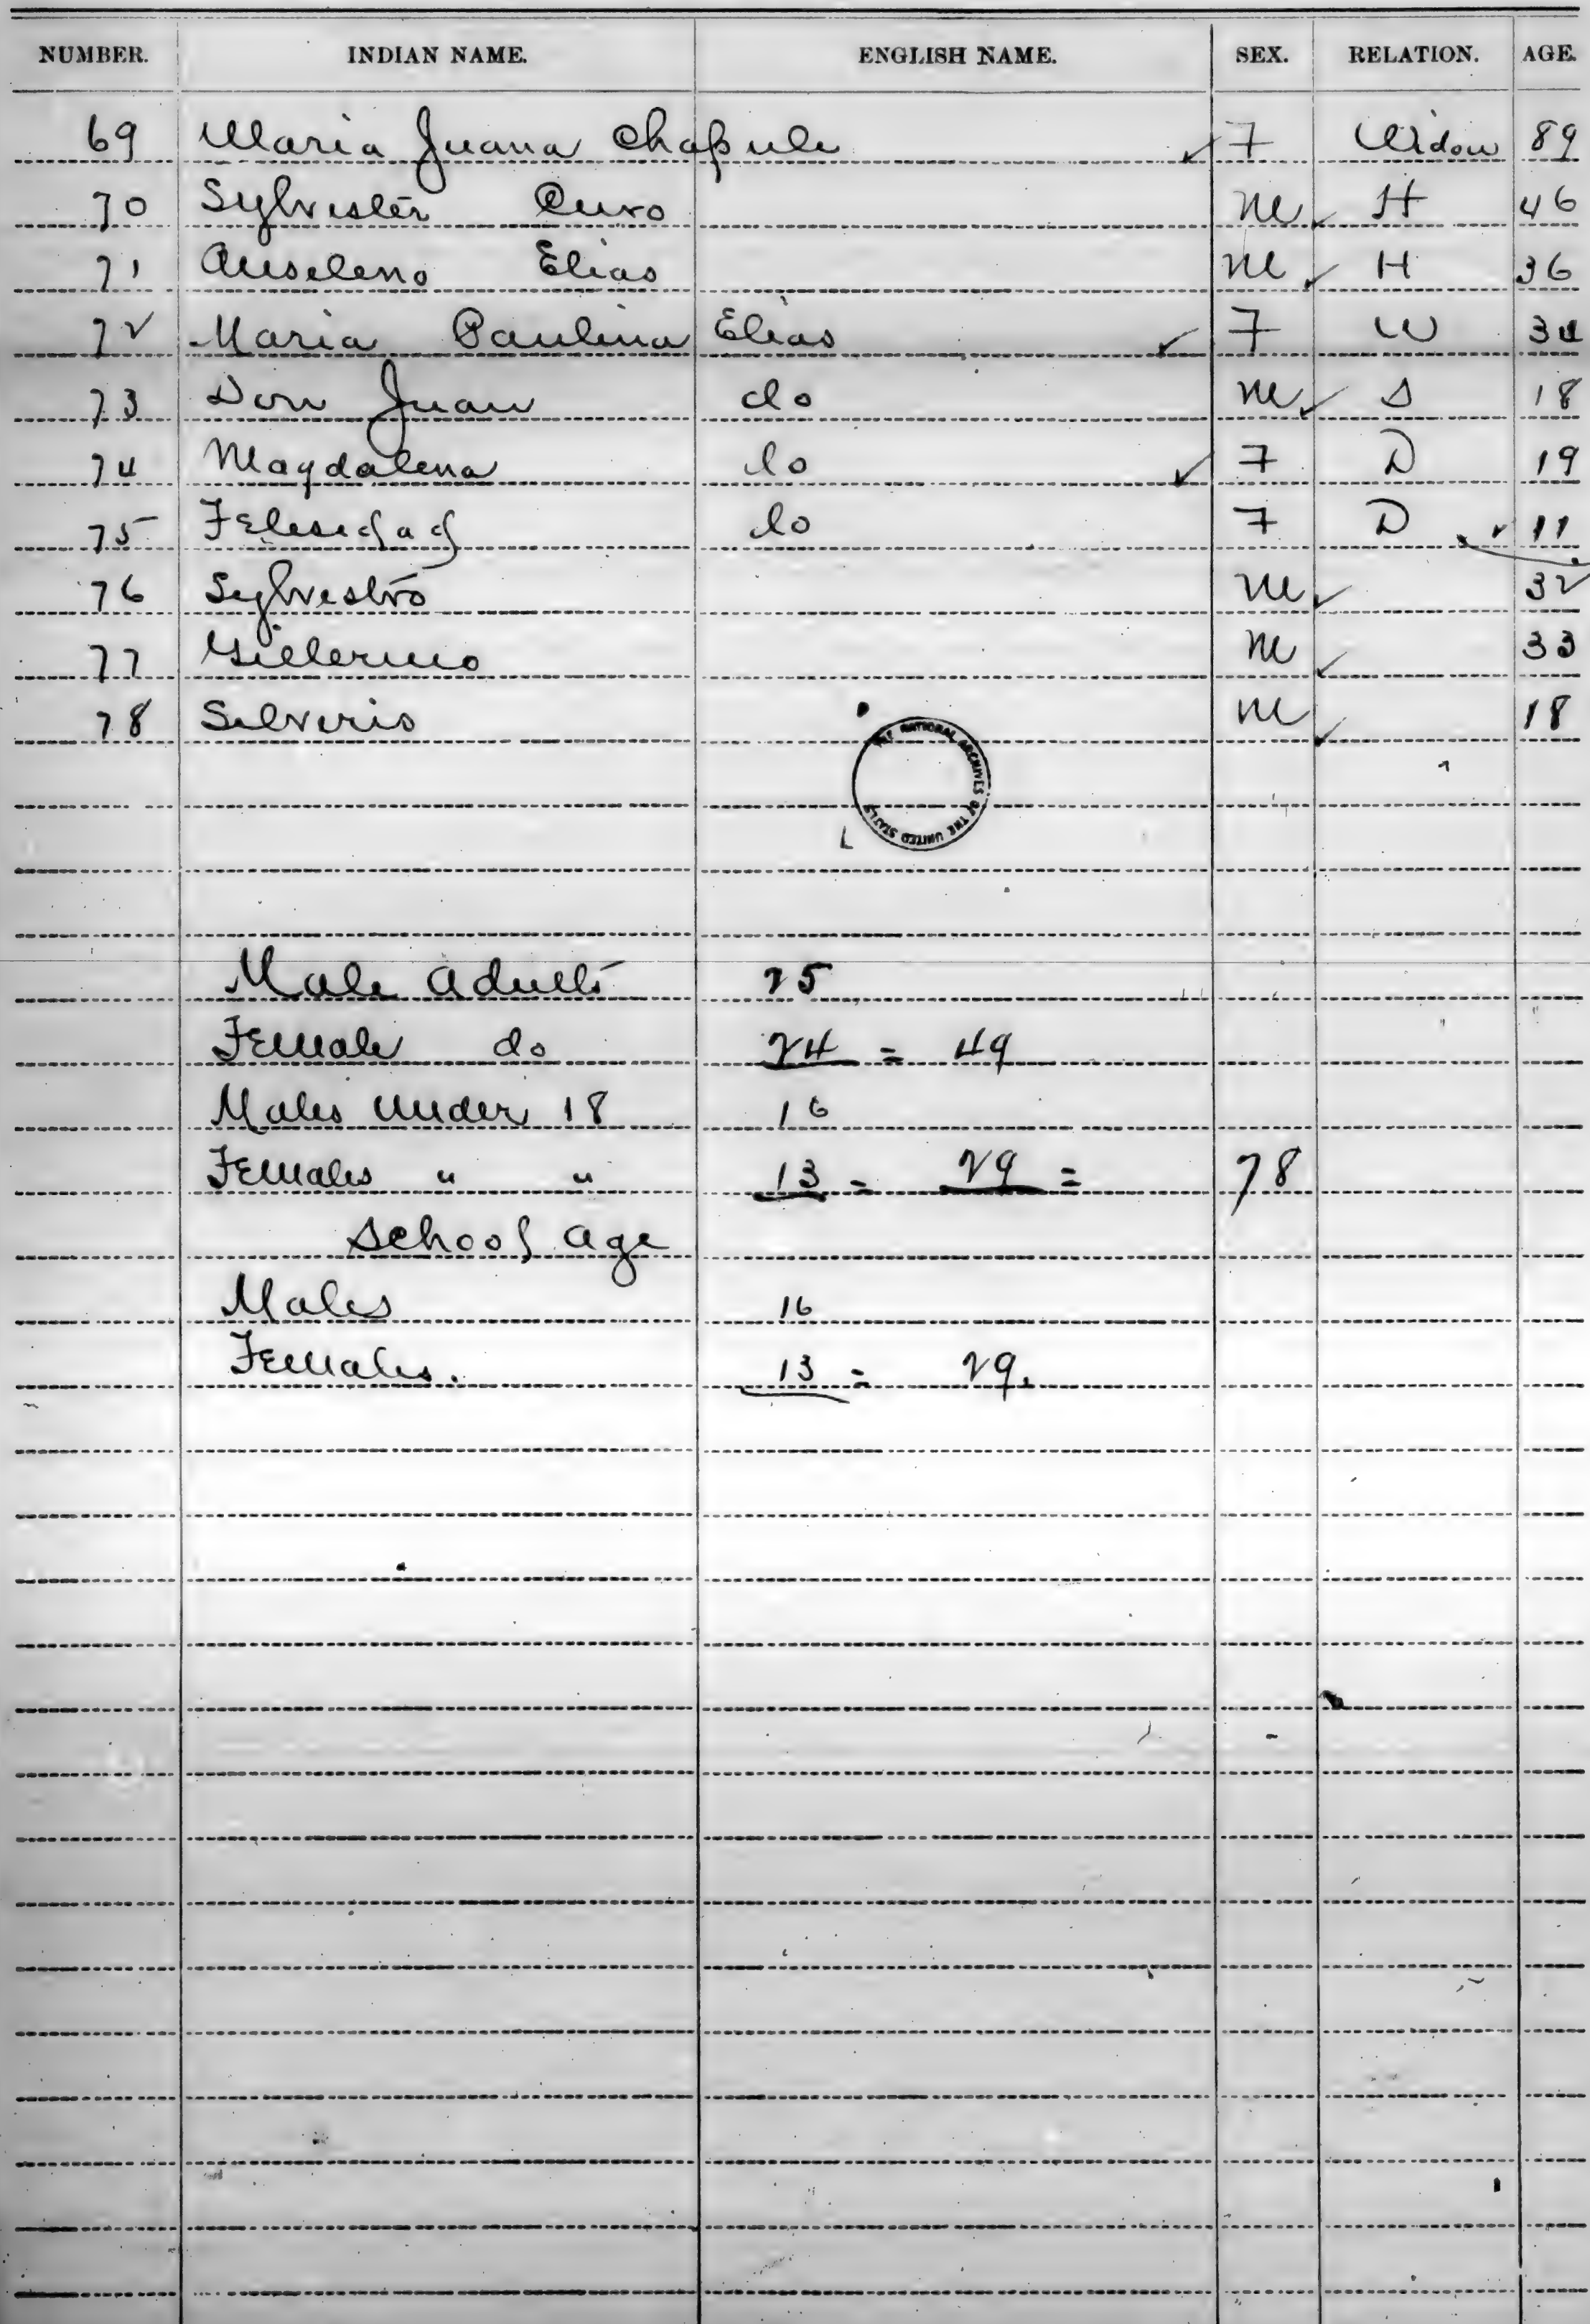 NUMBER. INDIAN NAME. ENGLISH NAME. SEX. RELATION. AGE.
69 Maria Juana Chapule F Widow 89
70 Sylvester Curo M H 46
71 Anselemo Elias M H 36
72 Maria Paulina Elias F W 34
73 Don Juan do M S 18
74 Magdalena do F D 19
75 Felesidad do F D 11
76 Sylvestro M 32
77 Gillermo M 33
78 Silverio M 18
THE NATIONAL ARCHIVES OF THE UNITED STATES
Male Adults 25
Female do 24 = 49
Males under 18 16
Females " " 13 = 29 = 78
School age
Males 16
Females. 13 = 29.